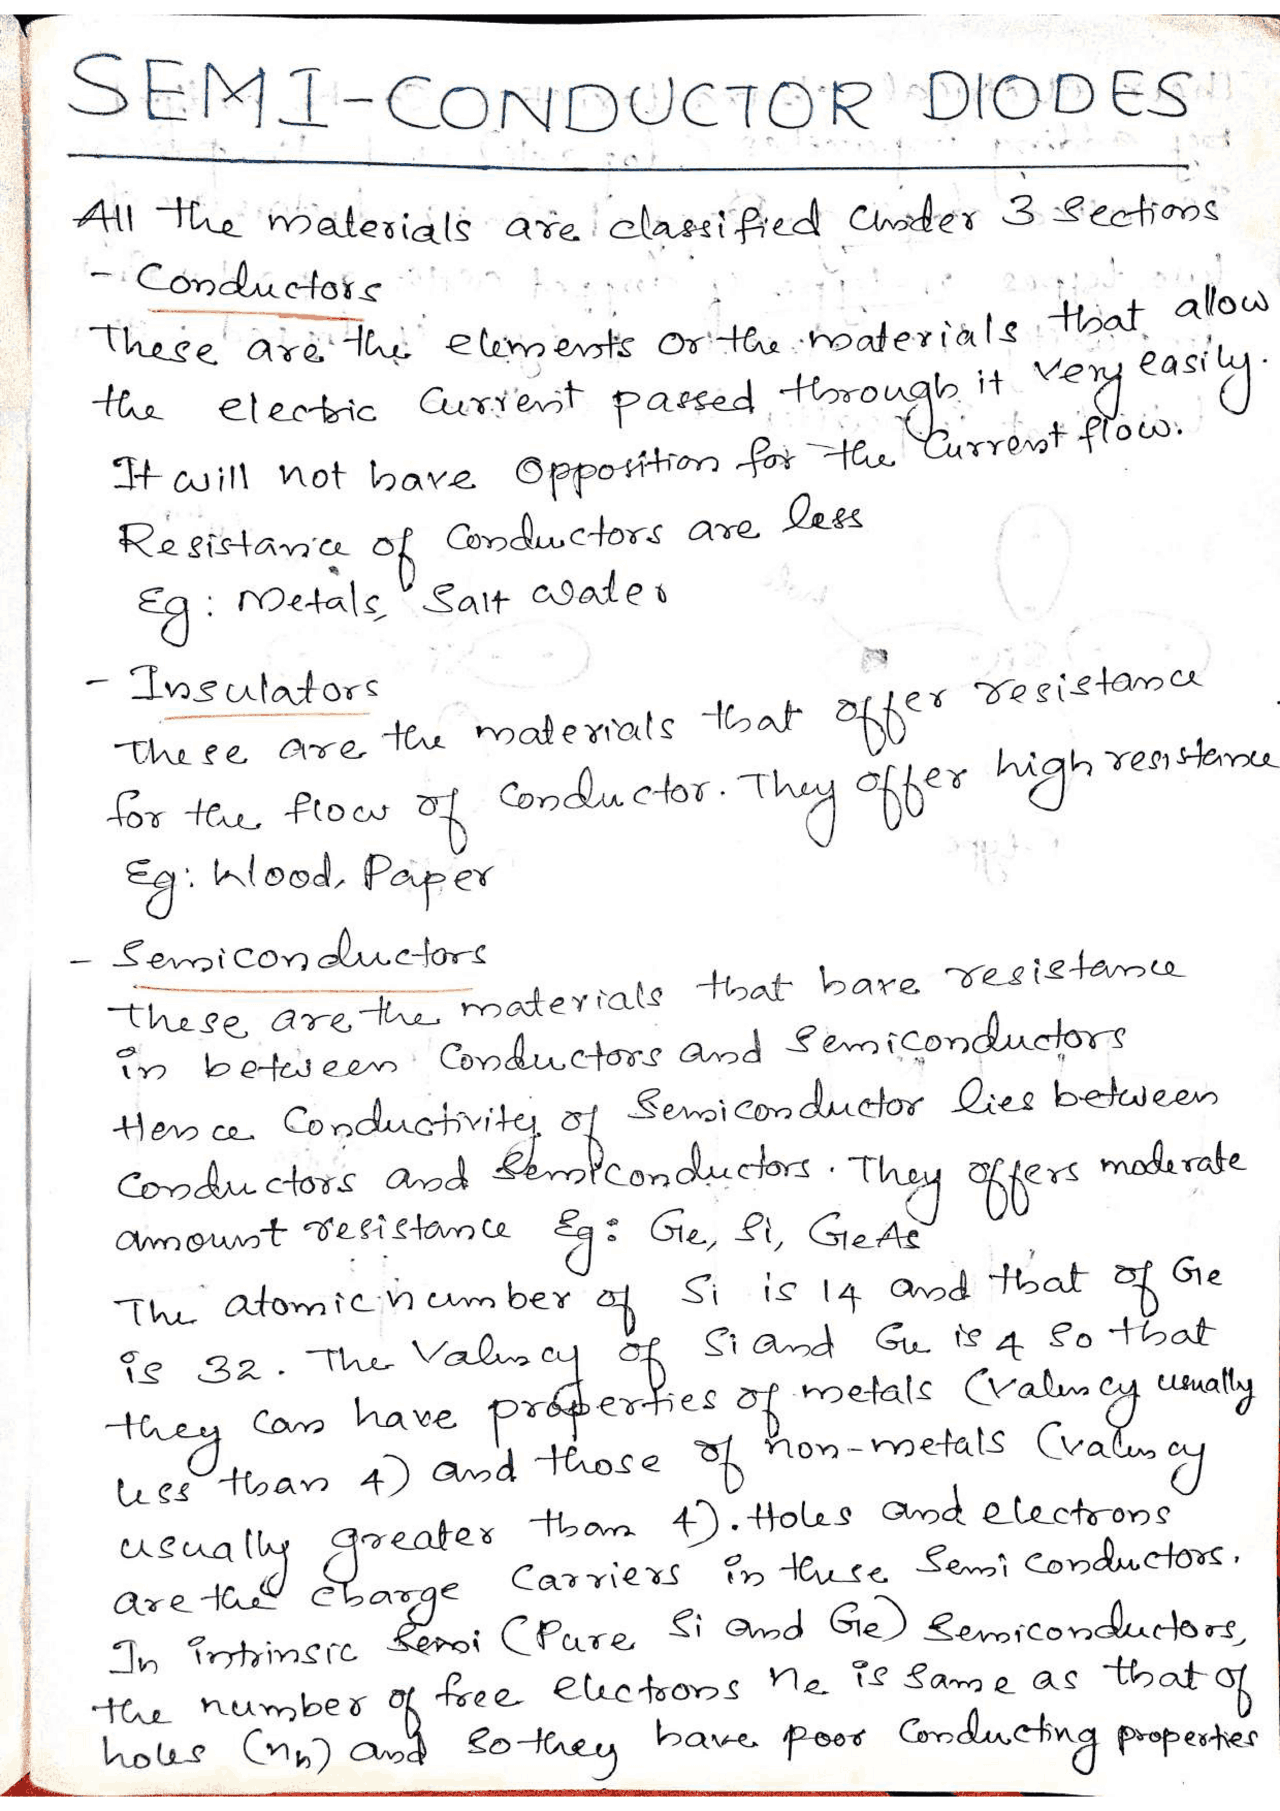 SEMI-CONDUCTOR DIODES
All the materials are classified under 3 Sections
- Conductors
These are the elements or the materials that allow
the electric current passed through it very easily.
It will not have opposition for the current flow.
Resistance of Conductors are less
Eg: Metals, Salt water
- Insulators
These are the materials that offer resistance
for the flow of conductor. They offer high resistance
Eg: Wood, Paper
- Semiconductors
These are the materials that have resistance
in between conductors and semiconductors
Hence Conductivity of Semiconductor lies between
conductors and semiconductors. They offers moderate
amount resistance Eg: Ge, Si, GeAs
The atomic number of Si is 14 and that of Ge
is 32. The Valency of Si and Ge is 4 so that
they can have properties of metals (valency usually
less than 4) and those of non-metals (valency
usually greater than 4). Holes and electrons
are the charge carriers in these Semiconductors.
In intrinsic Semi (Pure Si and Ge) Semiconductors,
the number of free electrons ne is same as that of
holes (nh) and so they have poor Conducting properties